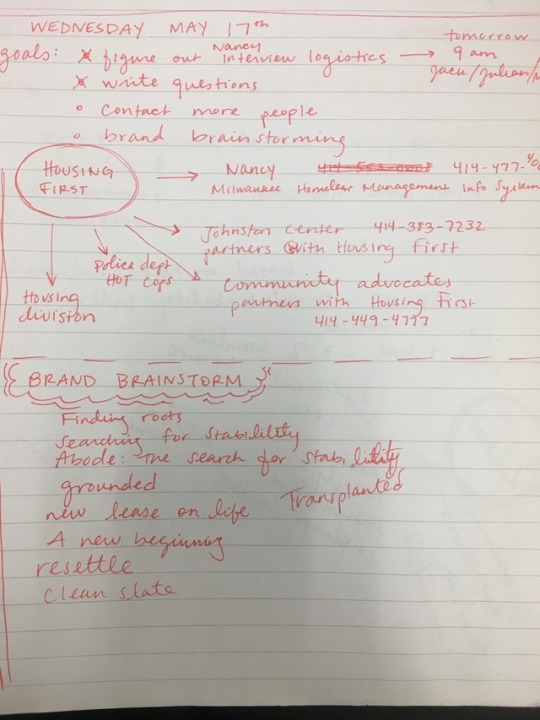 WEDNESDAY MAY 17th
tomorrow
goals: x figure out Nancy Interview logistics → 9 am
Jack/Julian/
x write questions
• contact more people
• brand brainstorming
HOUSING FIRST → Nancy 414-477-
Milwaukee Homeless Management Info System
Johnston Center 414-383-7232
partners with Housing First
Police dept
HOT Cops
Community advocates
partners with Housing First
414-449-4777
Housing
division
BRAND BRAINSTORM
Finding roots
Searching for Stability
Abode: The search for stability
grounded
Transplanted
new lease on life
A new beginning
resettle
Clean slate